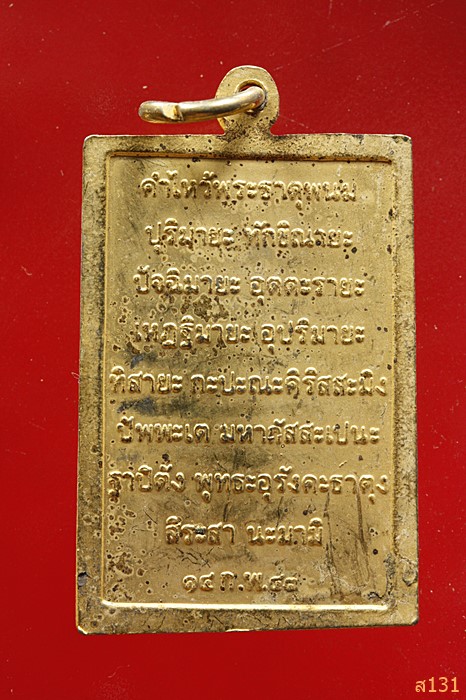 คำไหว้พระธาตุพนม
ปุริมายะ ทักขิณายะ
ปัจฉิมายะ อุตตะรายะ
เหฏฐิมายะ อุปริมายะ
ทิสายะ กะปะณะคิริสสะมิง
ปัพพะเต มหากัสสะเปนะ
ฐาปิตัง พุทธะอุรังคะธาตุง
สิระสา นะมามิ
๑๔ ก.พ.๔๘
ส131